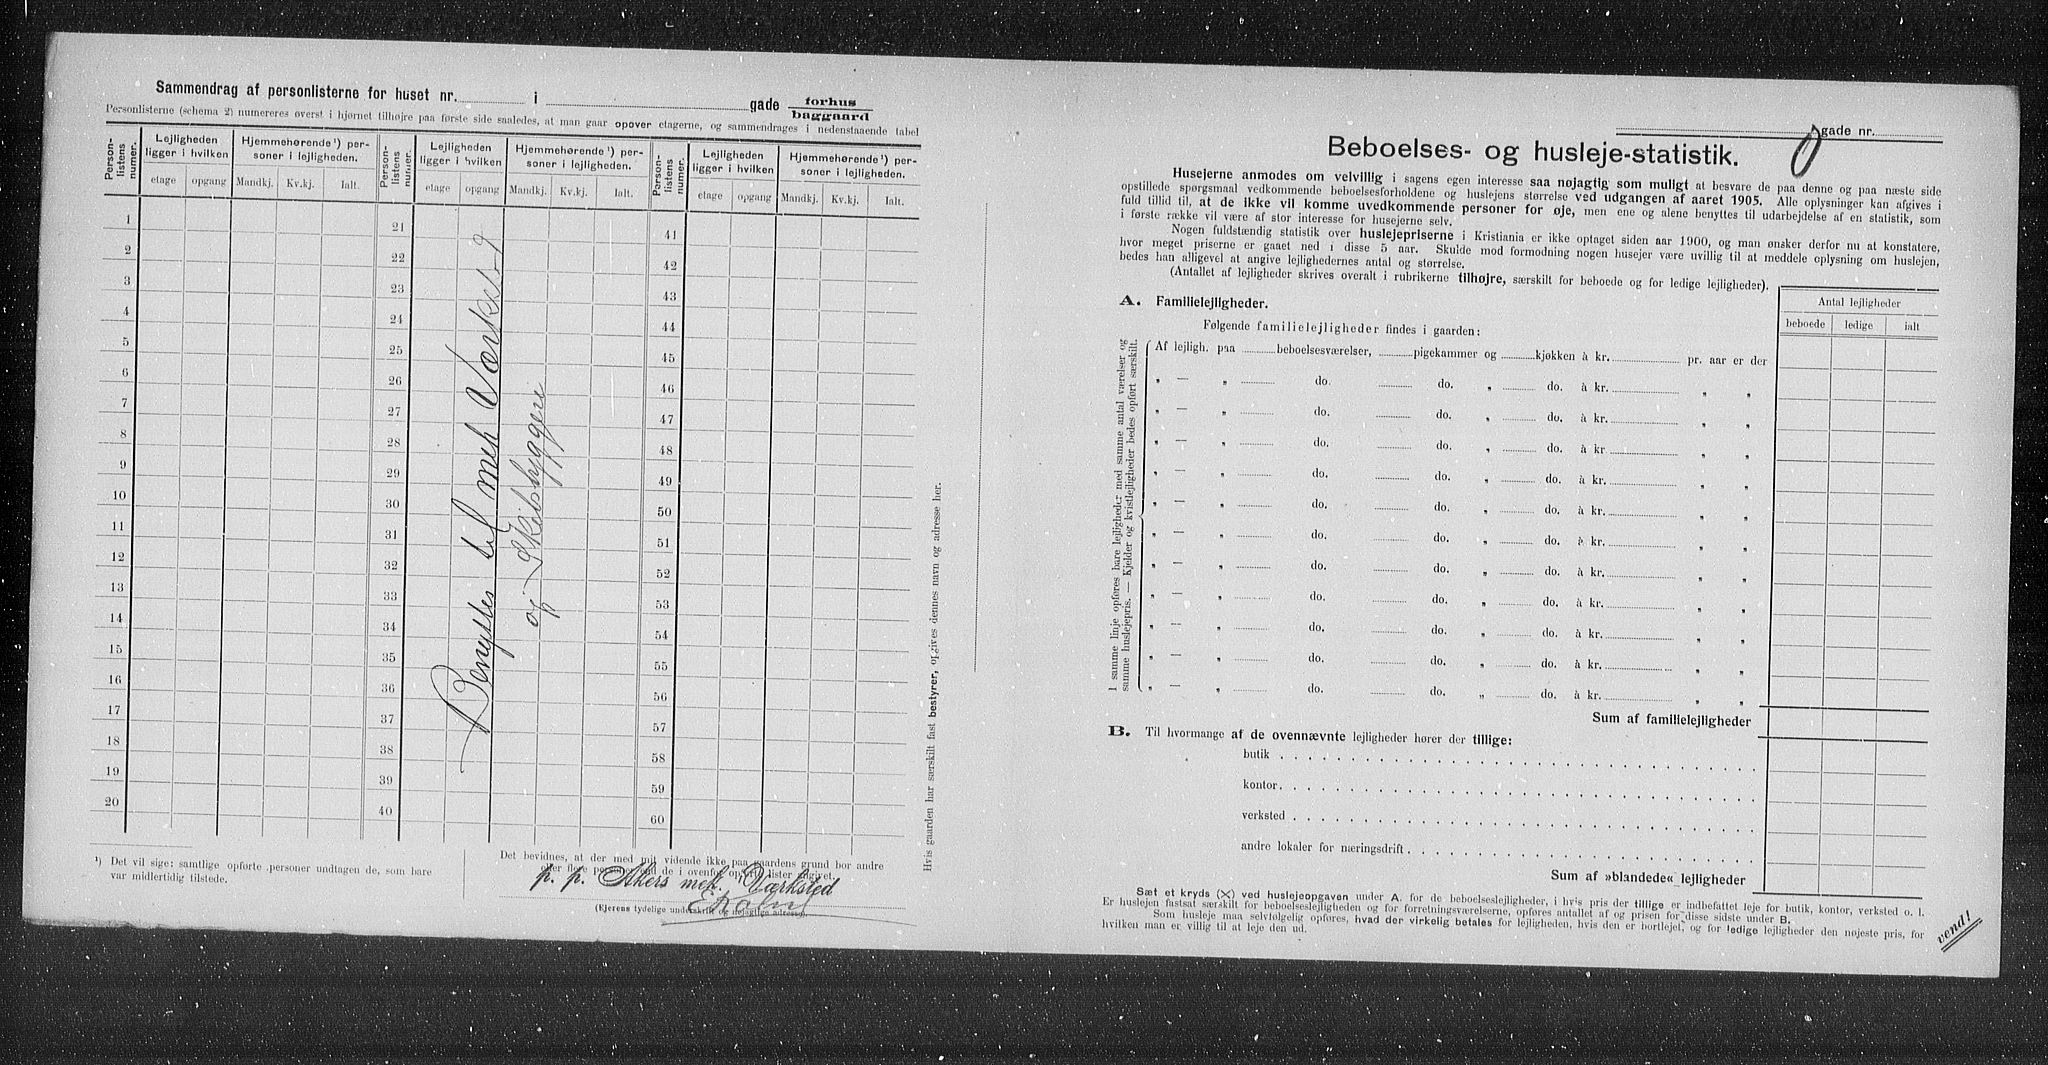 Sammendrag af personlisterne for huset nr. i gade forhus
baggaard
Personlisterne (schema 2) numereres øverst i hjørnet tilhøjre paa første side saaledes, at man gaar opover etagerne, og sammendrages i nedenstaaende tabel
Person-listens numer. Lejligheden ligger i hvilken Hjemmehørende ¹) personer i lejligheden. Person-listens numer. Lejligheden ligger i hvilken Hjemmehørende ¹) personer i lejligheden. Person-listens numer. Lejligheden ligger i hvilken Hjemmehørende ¹) personer i lejligheden.
etage opgang Mandkj. Kv.kj. Ialt. etage opgang Mandkj. Kv.kj. Ialt. etage opgang Mandkj. Kv.kj. Ialt.
1 21 41
2 22 42
3 23 43
4 24 44
5 25 45
6 26 46
7 27 47
8 28 48
9 29 49
10 30 50
11 31 51
12 32 52
13 33 53
14 34 54
15 35 55
16 36 56
17 37 57
18 38 58
19 39 59
20 40 60
Benyttes til mek Værksted
og Skibsbyggeri
¹) Det vil sige: samtlige opførte personer undtagen de, som bare
var midlertidig tilstede.
Det bevidnes, at der med mit vidende ikke paa gaardens grund bor andre
eller flere personer end de i ovenfor opførte lister angivet.
p. p. Akers mek. Værksted
(Ejerens tydelige underskrift og nøjagtige adresse)
Hvis gaarden har særskilt fast bestyrer, opgives dennes navn og adresse her.
gade nr.
Beboelses- og husleje-statistik.
Husejerne anmodes om velvillig i sagens egen interesse saa nøjagtig som muligt at besvare de paa denne og paa næste side
opstillede spørgsmaal vedkommende beboelsesforholdene og huslejens størrelse ved udgangen af aaret 1905. Alle oplysninger kan afgives i
fuld tillid til, at de ikke vil komme uvedkommende personer for øje, men ene og alene benyttes til udarbejdelse af en statistik, som
i første række vil være af stor interesse for husejerne selv.
Nogen fuldstændig statistik over huslejepriserne i Kristiania er ikke optaget siden aar 1900, og man ønsker derfor nu at konstatere,
hvor meget priserne er gaaet ned i disse 5 aar. Skulde mod formodning nogen husejer være uvillig til at meddele oplysning om huslejen,
bedes han alligevel at angive lejlighedernes antal og størrelse.
(Antallet af lejligheder skrives overalt i rubrikerne tilhøjre, særskilt for beboede og for ledige lejligheder).
A. Familielejligheder.
Antal lejligheder
beboede ledige ialt
Følgende familielejligheder findes i gaarden:
Af lejligh. paa beboelsesværelser, pigekammer og kjøkken à kr. pr. aar er der
„ — „ do. do. „ do. à kr. „ „
„ — „ do. do. „ do. à kr. „ „
„ — „ do. do. „ do. à kr „ „
„ — „ do. do. „ do. à kr. „ „
„ — „ do. do. „ do. à kr. „ „
„ — „ do. do. „ do. à kr. „ „
„ — „ do. do. „ do. à kr. „ „
„ — „ do. do. „ do. à kr. „ „
„ — „ do. do. „ do. à kr. „ „
„ — „ do. do. „ do. à kr. „ „
„ — „ do. do. „ do. à kr. „ „
I samme linje opføres bare lejligheder med samme antal værelser og
samme huslejepris. — Kjelder og kvistlejligheder bedes opført særskilt.
Sum af familielejligheder
B. Til hvormange af de ovennævnte lejligheder hører der tillige:
butik
kontor
verksted
andre lokaler for næringsdrift
Sum af »blandede« lejligheder
Sæt et kryds (X) ved huslejeopgaven under A. for de beboelseslejligheder, i hvis pris der tillige er indbefattet leje for butik, kontor, verksted o. l.
Er huslejen fastsat særskilt for beboelseslejligheden og for forretningsværelserne, opføres antallet af og prisen for disse sidste under B.
Som husleje maa selvfølgelig opføres, hvad der virkelig betales for lejligheden, hvis den er bortlejet, og for ledige lejligheder den nøjeste pris, for
hvilken man er villig til at leje den ud.
vend!